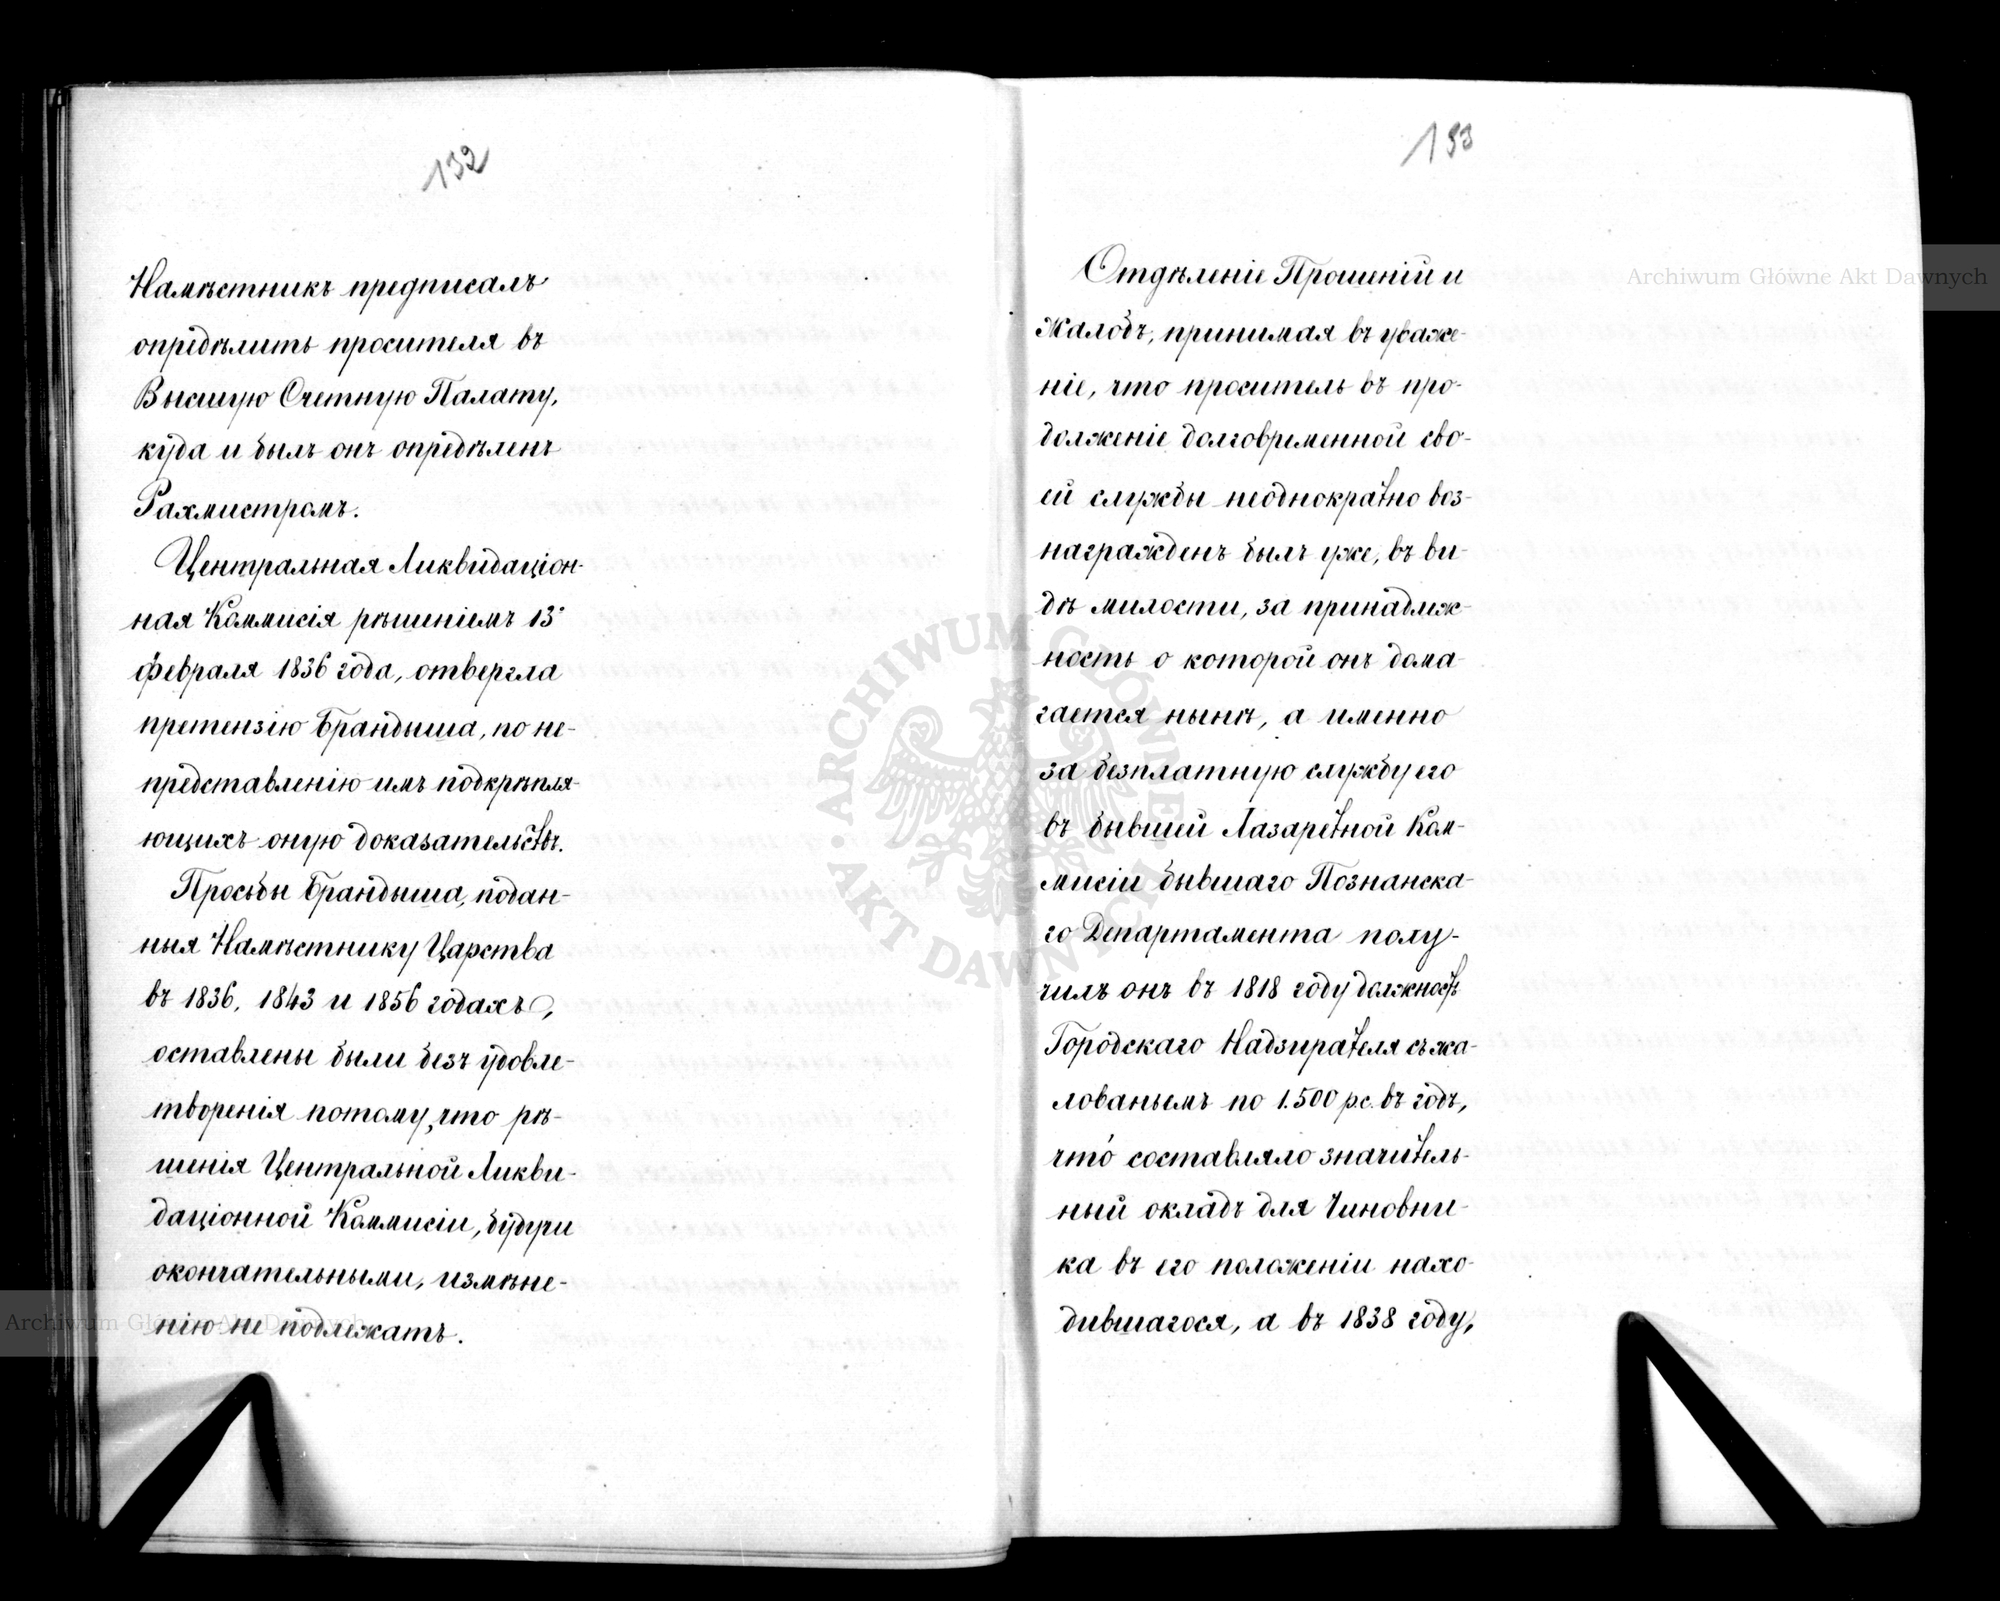 132
Намѣстникъ предписалъ
опредѣлить просителя въ
Высшую Счетную Палату,
куда и былъ онъ опредѣленъ
Рахмистромъ.
Центральная Ликвидаціон-
ная Коммисія рѣшеніемъ 13
февраля 1836 года, отвергла
претензію Брандыша, по не-
представленію имъ подкрѣпля-
ющихъ оную доказательствъ.
Просьбы Брандыша, подан-
ныя Намѣстнику Царства
въ 1836, 1843 и 1856 годахъ,
оставлены были безъ удовле-
творенія потому, что рѣ-
шенія Центральной Ликви-
даціонной Коммисіи, будучи
окончательными, измѣне-
нію не подлежатъ.
133
Отдѣленіе Прошеній и
Жалобъ, принимая въ уваже-
ніе, что проситель въ про-
долженіе долговременной сво-
ей службы неоднократно воз-
награжденъ былъ уже, въ ви-
дѣ милости, за принадлеж-
ность о которой онъ дома-
гается нынѣ, а именно
за безплатную службу его
въ бывшей Лазаретной Ком-
мисіи бывшаго Познанска-
го Департамента полу-
чилъ онъ въ 1818 году должность
Городскаго Надзирателя съ жа-
лованьемъ по 1.500 р.с. въ годъ,
что́ составляло значитель-
ный окладъ для Чиновни-
ка въ его положеніи нахо-
дившагося, а въ 1838 году,
Archiwum Główne Akt Dawnych
ARCHIWUM GŁÓWNE AKT DAWNYCH
Archiwum Główne Akt Dawnych